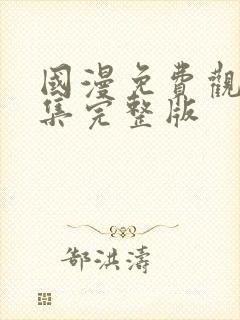 國漫免費觀
集完整版
郜洪濤